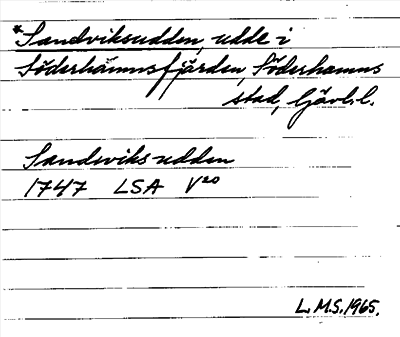 *Sandviksudden, udde i
Söderhamnsfjärden, Söderhamns
stad, Gävl.l.
Sandwiks udden
1747 LSA V20
L.M.S. 1965.